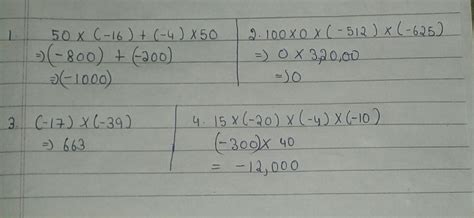 1. 50 x (-16) + (-4) x 50
⇒ (-800) + (-200)
⇒ (-1000)
2. 100 x 0 x (-512) x (-625)
⇒ 0 x 3,20,00
⇒ 0
3. (-17) x (-39)
⇒ 663
4. 15 x (-20) x (-4) x (-10)
(-300) x 40
= -12,000